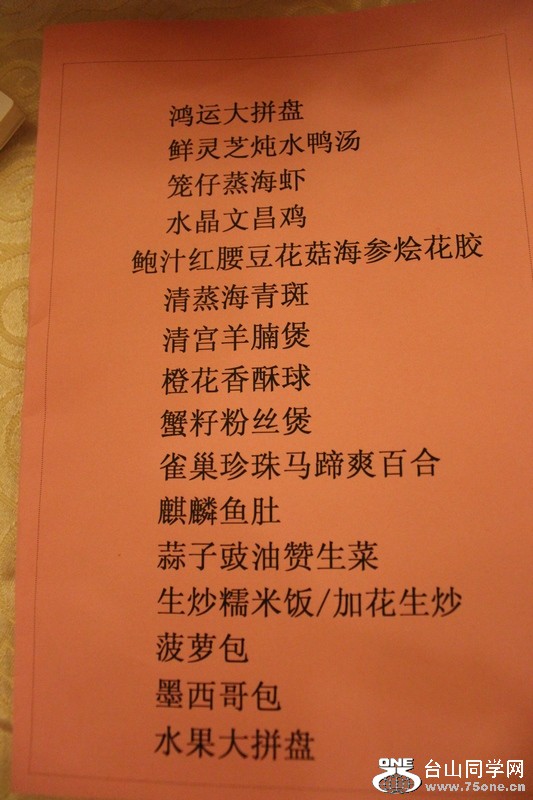 鸿运大拼盘
鲜灵芝炖水鸭汤
笼仔蒸海虾
水晶文昌鸡
鲍汁红腰豆花菇海参烩花胶
清蒸海青斑
清宫羊腩煲
橙花香酥球
蟹籽粉丝煲
雀巢珍珠马蹄爽百合
麒麟鱼肚
蒜子豉油赞生菜
生炒糯米饭/加花生炒
菠萝包
墨西哥包
水果大拼盘
ONE 台山同学网
www.75one.cn